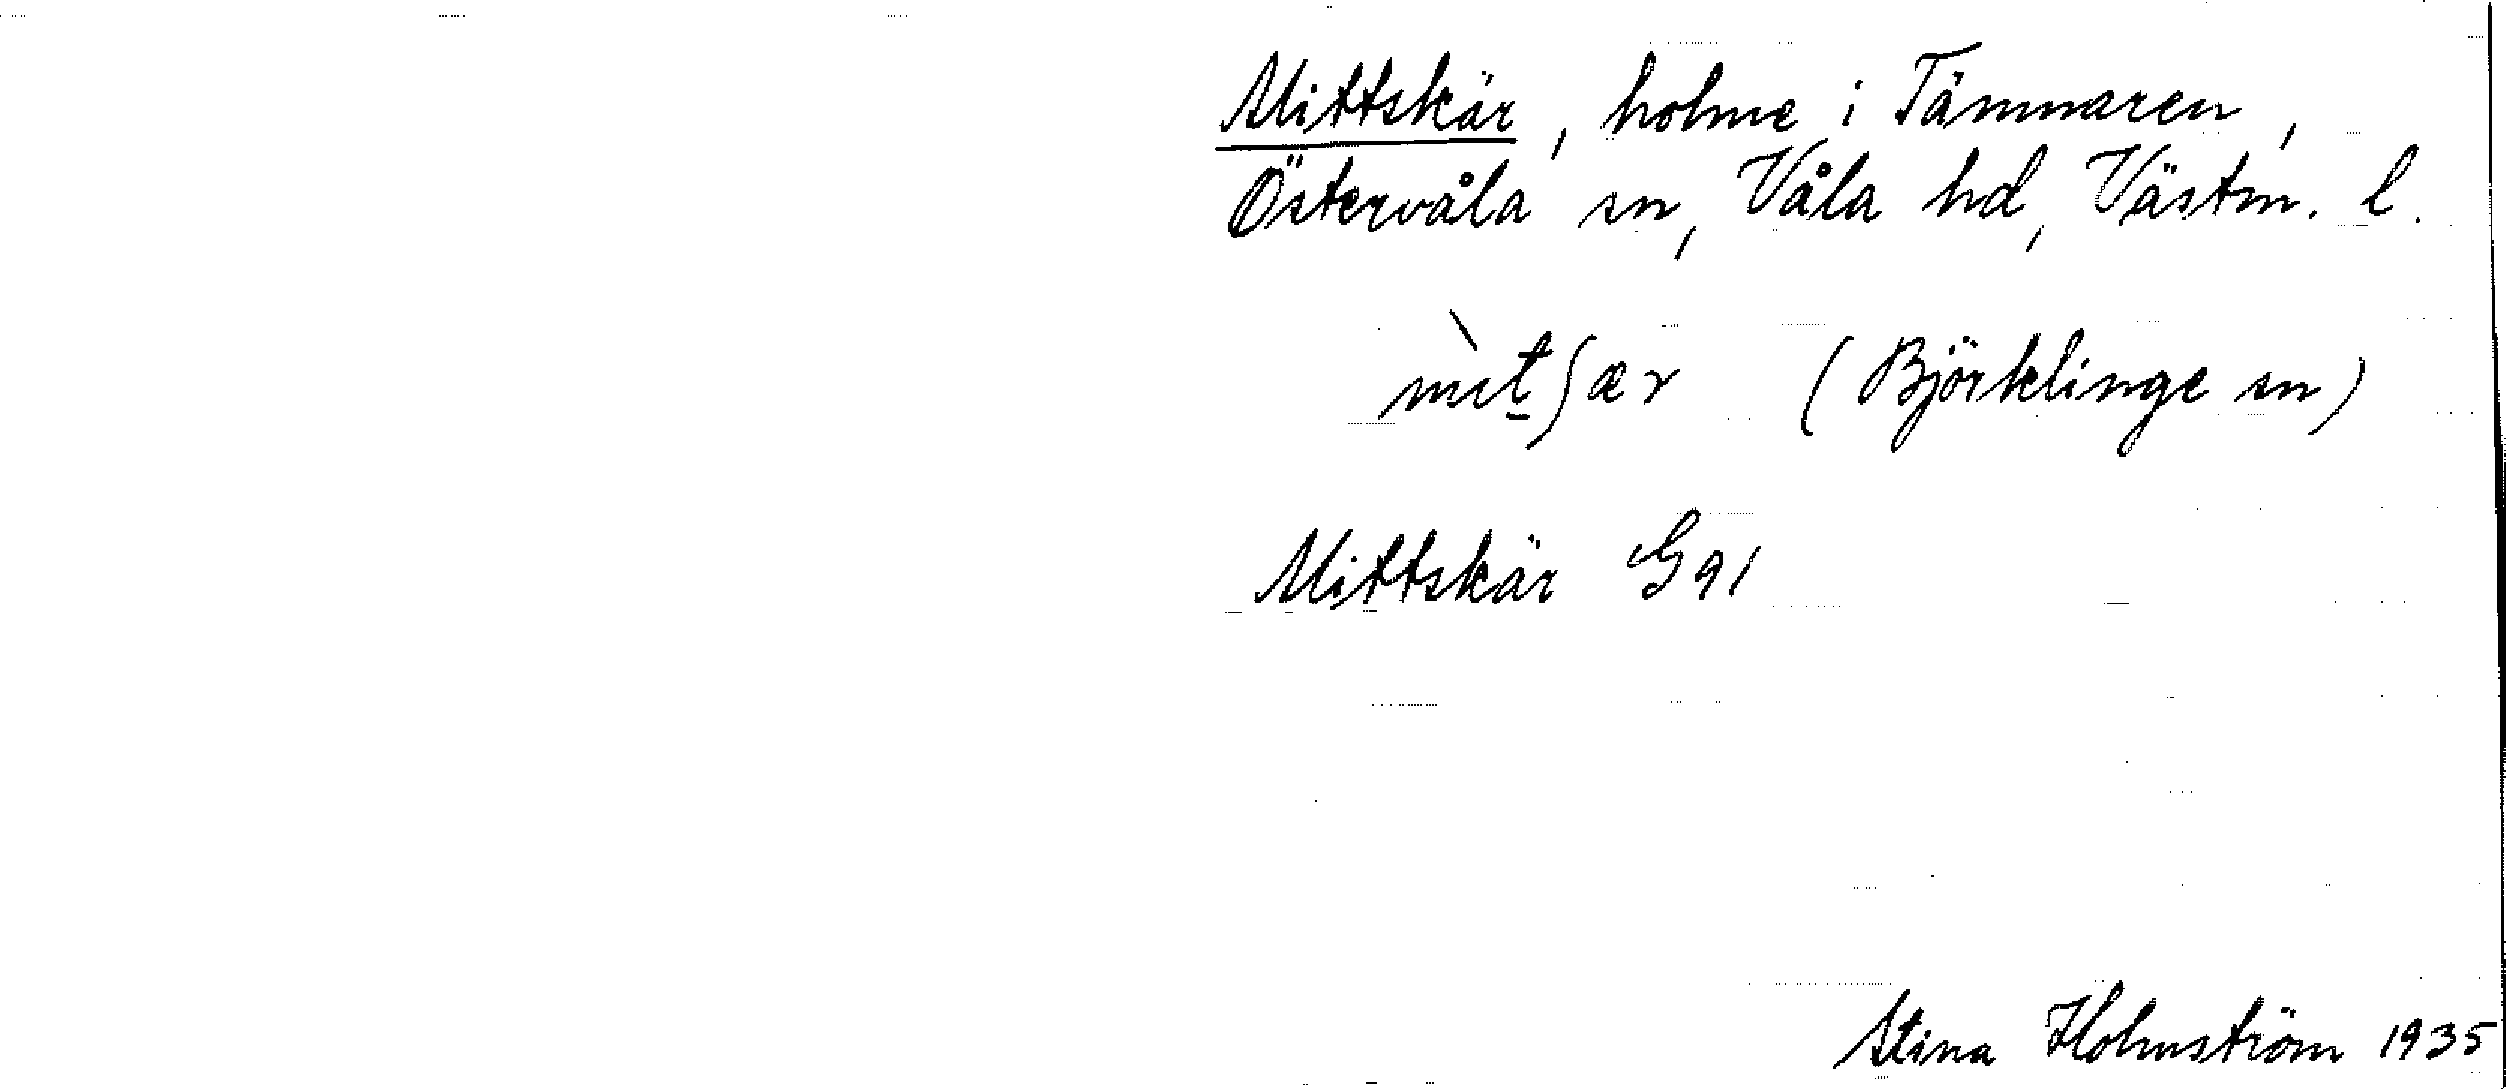 Mittskär, holme i Tämnaren,
Östervåla sn, Våla hd, Västm. l.
mèt̠ʃær (Björklinge sn)
Mittskär G 91
Stina Holmström 1935